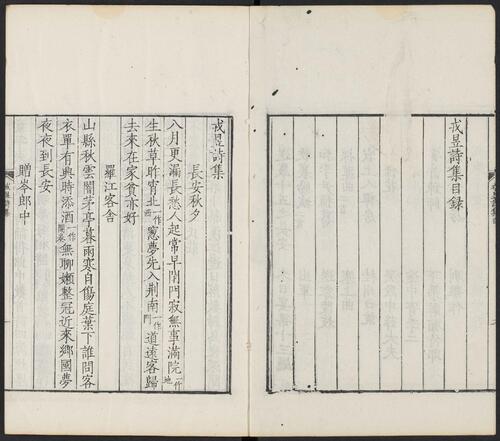 戎昱詩集目録
戎昱詩集
長安秋夕
八月更漏長愁人起常早閉門寂無事滿院一作地
生秋草昨宵北一作西窻夢先入荆南一作門道遠客歸
去來在家貧亦好
羅江客舍
山縣秋雲闇茅亭暮雨寒自傷庭葉下誰問客
衣單有興時添酒一作無聊嬾整冠近來鄉國夢
夜夜到長安
贈岑郎中